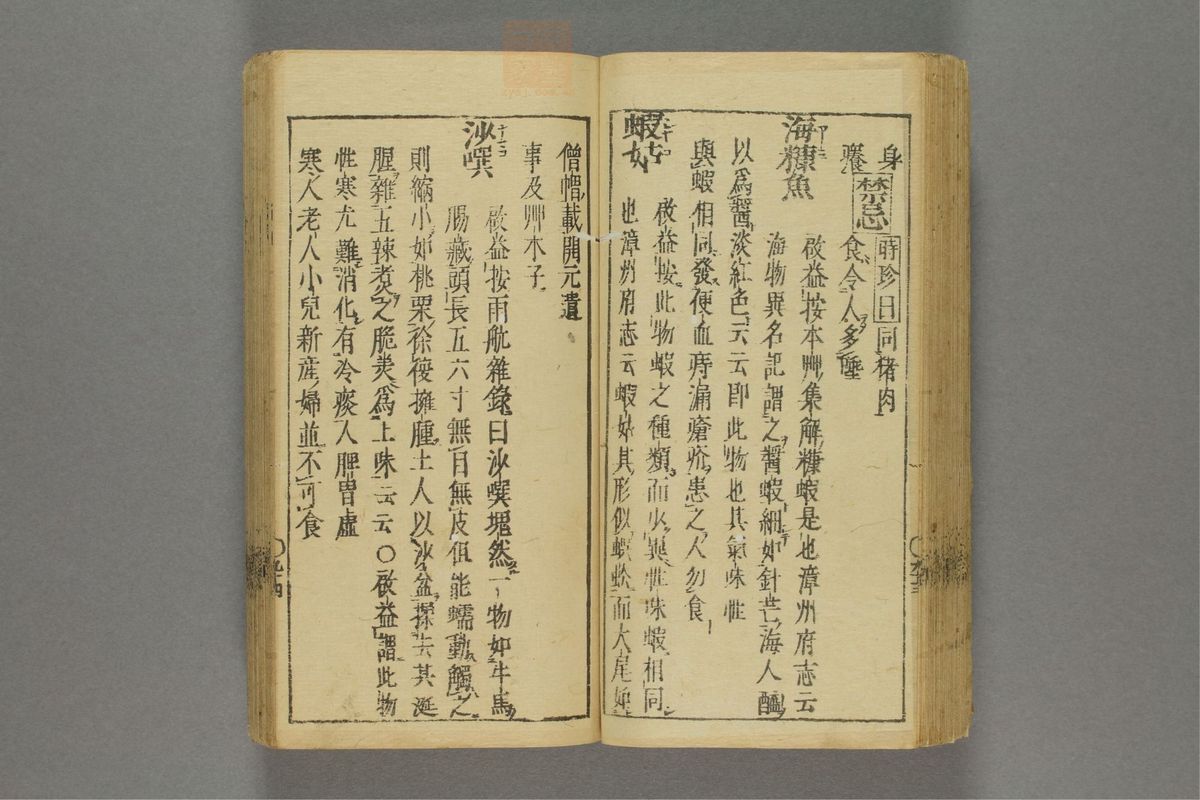 身
癢禁忌時珍曰同猪肉
食令人多唾
海糠魚
啟益按本艸集解糠蝦是也漳州府志云
海物異名記謂之醬蝦細如針芒海人醢
以為醤淡紅色云云即此物也其氣味性
與蝦相同發便血痔漏瘡疥患之人勿食
蝦姑
啟益按此物蝦之種類而少異性味蝦相同
也漳州府志云蝦姑其形似蝦蚣而大尾如
僧帽載開元遺
事及艸木子
沙噀
啟益按雨航雜錄曰沙噀塊然一物如牛馬
腸藏頭長五六寸無目無皮但能蠕動觸之
則縮小如桃栗徐復擁腫土人以沙盆揉去其涎
腥雜五辣煮之脆美為上味云云〇啟益謂此物
性寒尤難消化有冷痰人脾胃虛
寒人老人小兒新産婦並不可食